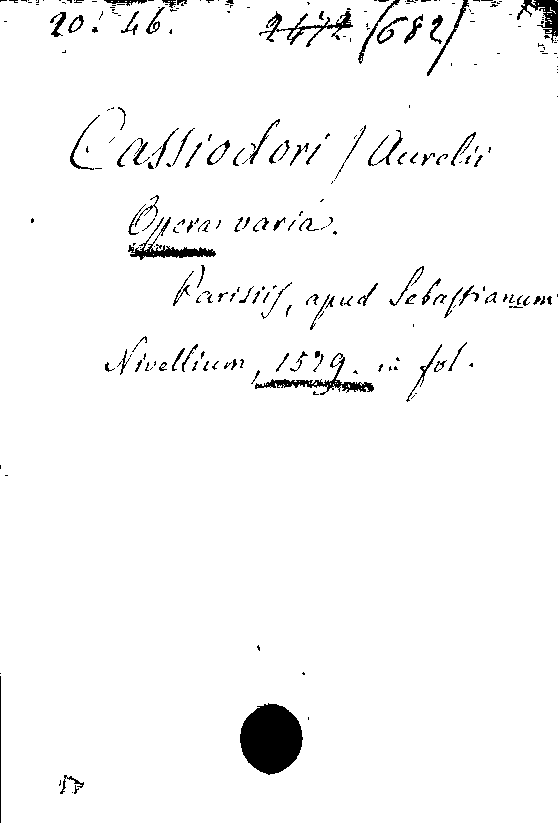 20. 46. 2472 (682)
Cassiodori / Aurelii
Opera varia.
Parisiis, apud Sebastianum
Nivellium, 1579. in fol.